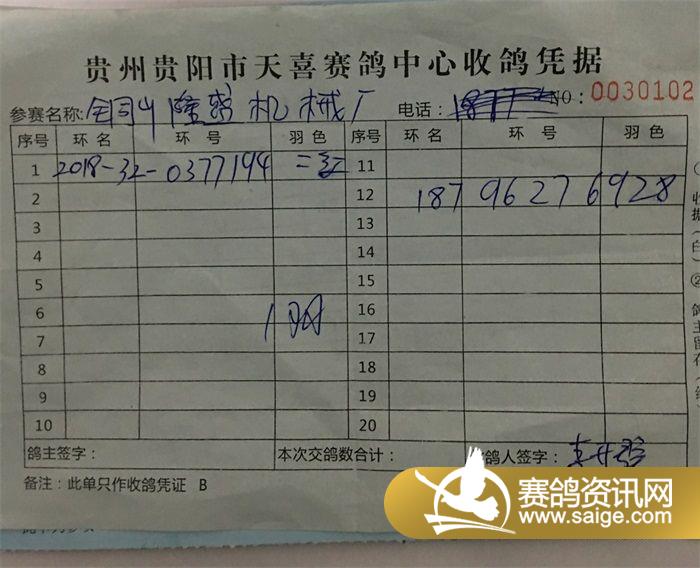 贵州贵阳市天喜赛鸽中心收鸽凭据
参赛名称: 机械厂 电话: NO: 0030102
序号 环名 环号 羽色 序号 环名 环号 羽色
1 2018-32-0377194 二 11
2 12 18796276928
3 13
4 14
5 15
6 16
7 17
8 18
9 19
10 20
鸽主签字: 本次交鸽数合计: 鸽人签字:
备注: 此单只作收鸽凭证 B
赛鸽资讯网
www.saige.com